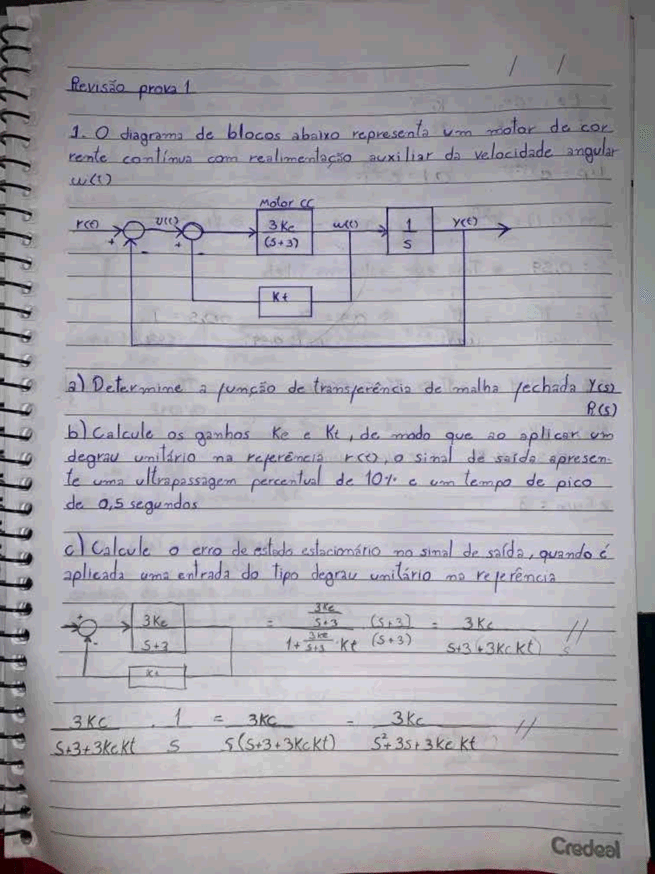 / /
Revisão prova 1
1. O diagrama de blocos abaixo representa um motor de cor
rente contínua com realimentação auxiliar da velocidade angular
w(t)
Motor CC
r(t) + - v(t) + - 3Ke/(s+3) w(t) 1/s y(t)
Kt
a) Determine a função de transferência de malha fechada Y(s)/R(s)
b) Calcule os ganhos Ke e Kt, de modo que ao aplicar um
degrau unitário na referência r(t), o sinal de saída apresen-
te uma ultrapassagem percentual de 10% e um tempo de pico
de 0,5 segundos
c) Calcule o erro de estado estacionário no sinal de saída, quando é
aplicada uma entrada do tipo degrau unitário na referência
+ - 3Ke/s+3 = 3Ke/s+3 / 1+3Ke/s+3 . Kt (s+3)/(s+3) = 3Kc/s+3+3KcKt // s
Kt
3Kc/s+3+3KcKt . 1/s = 3Kc/s(s+3+3KcKt) = 3Kc/s²+3s+3KcKt //
Credeal